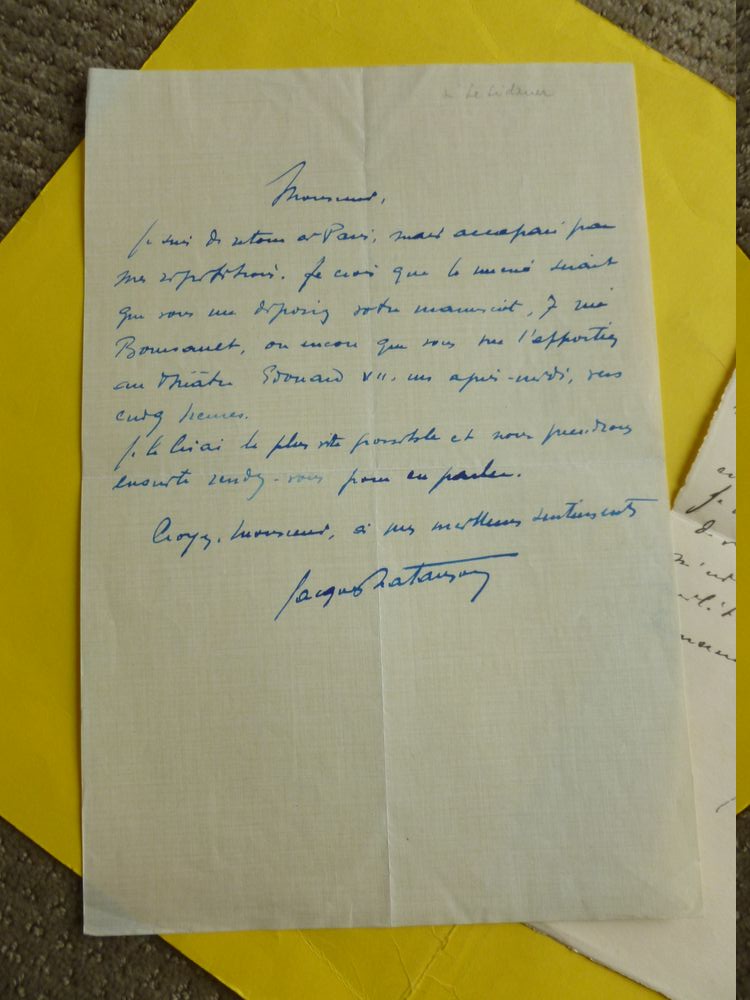 à Le Sidaner
Monsieur,
Je suis de retour à Paris, mais accaparé par
mes répétitions. Je crois que le mieux serait
que vous me déposiez votre manuscrit, 7 rue
Boursault, ou encore que vous me l'apportiez
au théâtre Edouard VII. un après-midi, vers
cinq heures.
Je le lirai le plus vite possible et nous prendrons
ensuite rendez-vous pour en parler.
Croyez, Monsieur, à mes meilleurs sentiments
Jacques Natanson